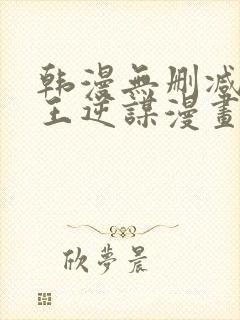 韩漫無删减
王逆謀漫畫
欣夢晨